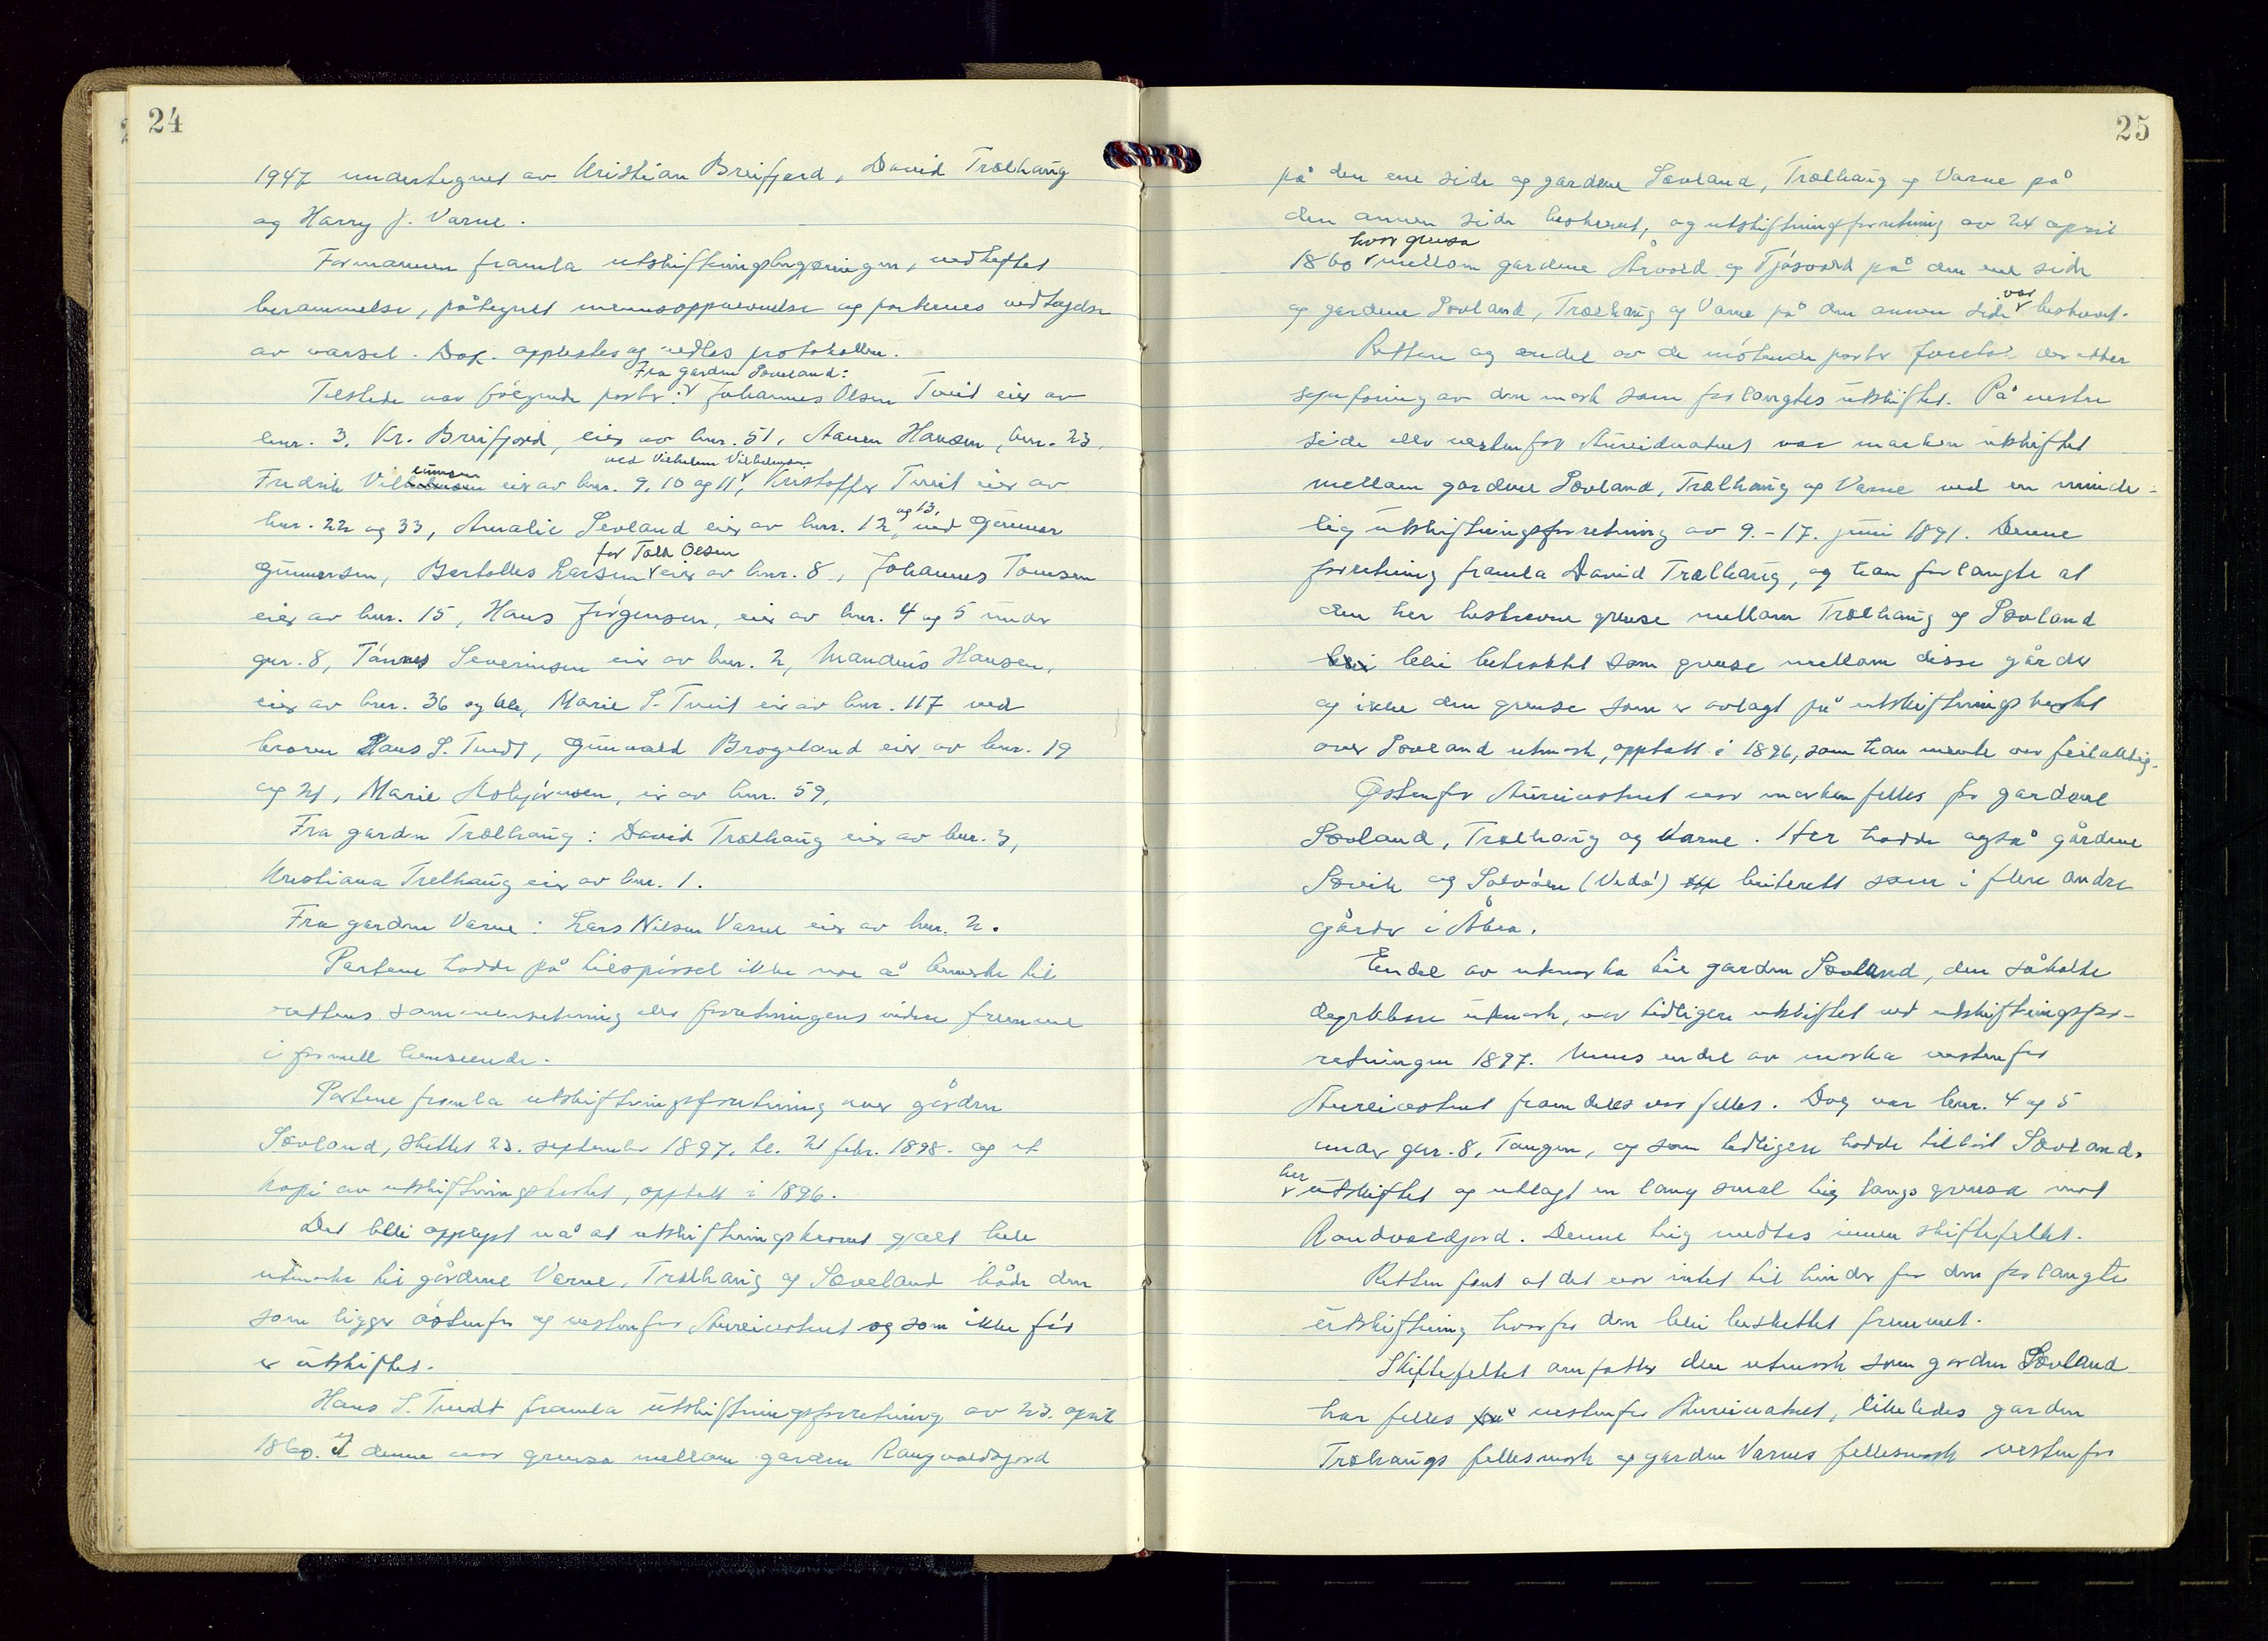 24
1947 undertegnet av Kristian Breifjord, David Trælhaug
og Harry J. Varne.
Formannen framla utskiftningsbegjæringen, vedheftet
berammelse, påtegnet mennsoppnevnelse og partenes vedtagelse
av varsel. Dok. opplestes og vedlas protokollen.
Fra garden Søvland:
Tilstede var følgende parter: Johannes Olsen Tveit eier av
bnr. 3, Kr. Breifjord, eier av bnr. 51, Hansen, bnr. 23,
ved Vilhelm Vilhelmsen
Fredrik eier av bnr. 9, 10 og 11, Kristoffer Tveit eier av
og 13,
bnr. 22 og 33, Amalie Sevland eier av bnr. 12 ved Gunnar
for Tollk Olsen
Gunnarsen, Bertolles Larsen eier av bnr. 8, Johannes Tomsen
eier av bnr. 15, Hans Jørgensen, eier av bnr. 4 og 5 under
gnr. 8, Tønnes Severinsen eier av bnr. 2, Mandeus Hansen,
eier av bnr. 36 og Marie S. Tveit eier av bnr. 117 ved
broren Hans S. Tvedt, Gunvald Brogeland eier av bnr. 19
og 21, Marie eier av bnr. 59,
Fra garden Trælhaug: David Trælhaug eier av bnr. 3,
Kristiana Trelhaug eier av bnr. 1.
Fra garden Varne: Lars Nilsen Varne eier av bnr. 2.
Partene hadde på tilspørsel ikke noe å bemerke til
rettens sammensetning eller forretningens videre fremme
i formell henseende.
Partene framla utskiftningsforretning over gården
Sævland, sluttet 23. september 1897, tl. 21 febr. 1898. og et
kopi av utskiftningskartet, opptatt i 1896.
Det blei opplyst nå at utskiftningskravet gjelt hele
utmarka til gårdene Varne, Trælhaug og Sæveland både den
som ligger østenfor og vestenfor Aureivatnet og som ikke før
er utskiftet.
Hans S. Tvedt framla utskiftningsforretning av 23. april
1860. I denne var grensa mellom garden Rangvaldsjord
25
på den ene side og gardene Sævland, Trælhaug og Varne på
den annen side beskrevet, og utskiftningsforretning av 24 april
hvor grensa
1860 mellom gardene Årvold og Tjøsvold på den ene side
var
og gardene Sævland, Trælhaug og Varne på den annen side beskrevet.
Retten og endel av de møtende parter foretok deretter
synfaring av den mark som forlangtes utskiftet. På vestre
side eller vestenfor Aureivatnet var marken utskiftet
mellom gardene Sævland, Trælhaug og Varne ved en minde-
lig utskiftningsforretning av 9. - 17. juni 1891. Denne
forretning framla David Trælhaug, og han forlangte at
den her beskrevne grense mellom Trælhaug og Sævland
blei betraktet som grense mellom disse gårder
og ikke den grense som er avlagt på utskiftningskartet
over Sævland utmark, opptatt i 1896, som han mente var feilaktig.
Østenfor Aureivatnet var marken felles for gardene
Sævland, Trælhaug og Varne. Her hadde også gårdene
Sævik og Salvøen (Vedø) beiterett som i flere andre
gårder i Åkra.
Endel av utmarka til garden Sævland, den såkalte
utmark, var tidligere utskiftet ved utskiftningsfor-
retningen 1897. Mens endel av marka vestenfor
Aureivatnet framdeles var felles. Dog var bnr. 4 og 5
under gnr. 8, Tangen, og som tidligere hadde tilhørt Sævland,
her
utskiftet og utlagt en lang smal teig langs grensa mot
Randvaldjord. Denne teig medtas innen skiftefeltet.
Retten fant at det var intet til hinder for den forlangte
utskiftning hvorfor den blei besluttet fremmet.
Skiftefeltet omfatter den utmark som garden Sævland
har felles vestenfor Aureivatnet, likeledes garden
Trælhaugs fellesmark og garden Varnes fellesmark vestenfor